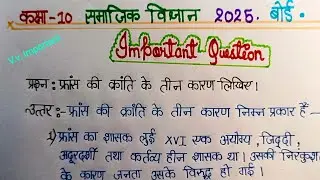 कक्षा-10 समाजिक विज्ञान 2025. बोर्ड.
V.v. Important
Important Question
प्रश्न:- फ्रांस की क्रांति के तीन कारण लिखिए।
उत्तर:- फ्रांस की क्रांति के तीन कारण निम्न प्रकार हैं—
1) फ्रांस का शासक लुई XVI एक अयोग्य, जिद्दी,
अदूरदर्शी तथा कर्तव्य हीन शासक था। उसकी निरंकुश
के कारण जनता उसके विरुद्ध हो गई।